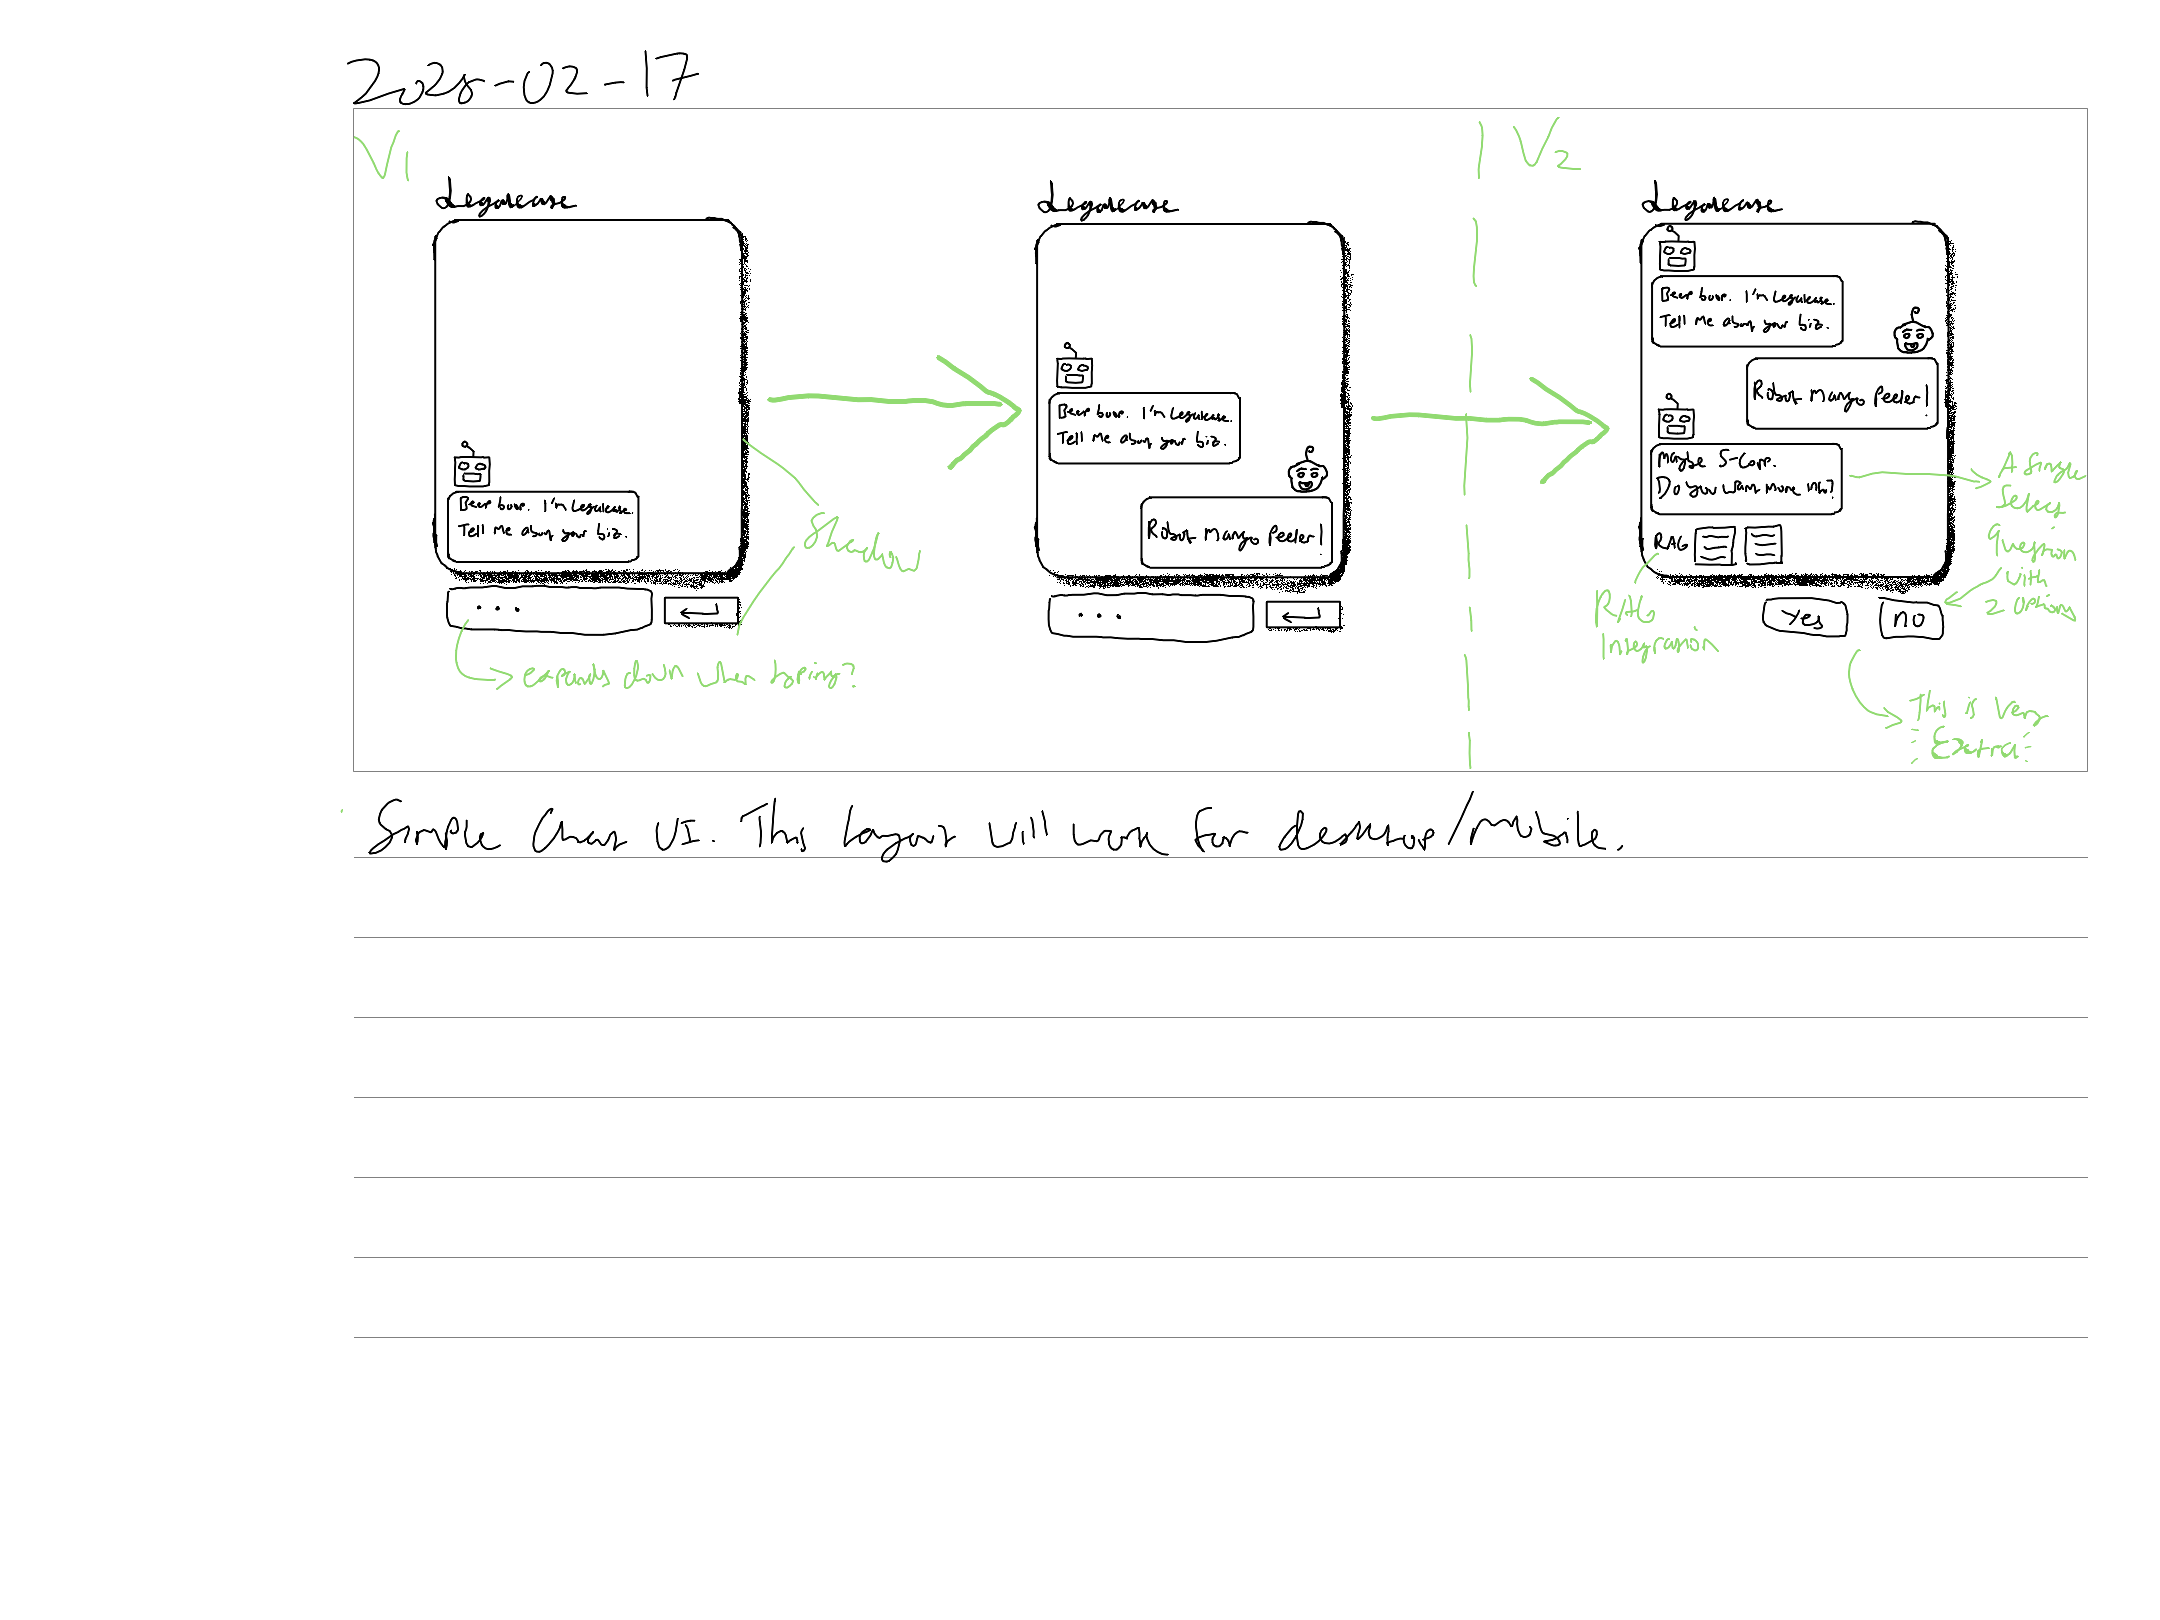 2025-02-17
V1
Legalease
Beep boop. I'm Legalease.
Tell me about your biz.
...
Shadow
expands down when typing?
Legalease
Beep boop. I'm Legalease.
Tell me about your biz.
Robot Mango Peeler!
...
V2
Legalease
Beep boop. I'm Legalease.
Tell me about your biz.
Robot Mango Peeler!
Maybe S-Corp.
Do you want more info?
RAG
Yes
no
A Single
Select
Question
with
2 Options
RAG
Integration
This is Very
Extra
Simple Chat UI. This layout will work for desktop/mobile.